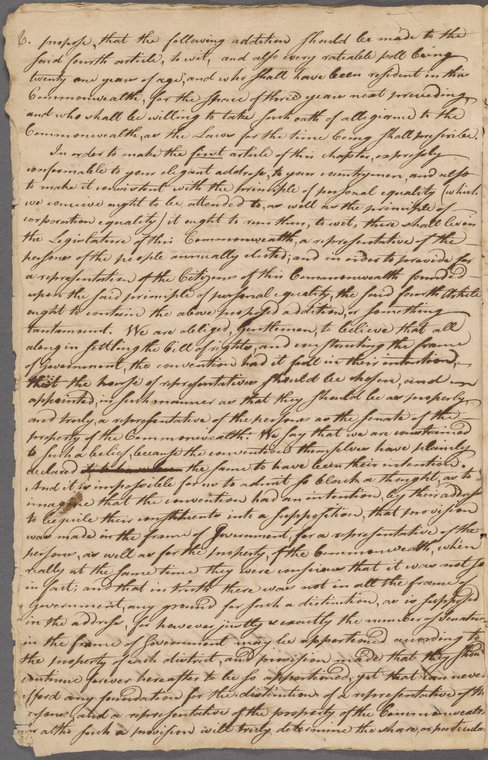 6. propose, that the following addition should be made to the
said fourth article, to wit, and also every rateable poll being
twenty one years of age, and who shall have been resident in this
Commonwealth, for the space of three years next preceeding,
and who shall be willing to take such oath of allegiance to the
Commonwealth, as the Laws for the time being shall prescribe.
In order to make the first article of this chapter, expressly
conformable to your elegant address, to your countrymen, and also
to make it consistent with the principle of personal equality (which
we conceive ought to be attended to, as well as the principle of
corporation equality) it ought to run thus, to wit, there shall be in
the Legislature of this Commonwealth, a representative of the
persons of the people annually elected, and in order to provide for
a representation of the Citizens of this Commonwealth founded
upon the said principle of personal equality, the said fourth Article
ought to contain the above proposed addition, or something
tantamount. We are obliged, Gentlemen, to believe that all
along in settling the bill of rights, and constructing the frame
of Government, the convention had it full in their intention,
that the house of representatives should be chosen, and
appointed, in such manner as that they should be as properly
and truly, a representative of the persons as the senate of the
property of the Commonwealth. We say that we are constrained
to such a belief, because the convention themselves have plainly
declared the same to have been their intention.
And it is impossible for us to admit so black a thought, as to
imagine that the convention had an intention, by their address
to beguile their constituents into a supposition, that provision
was made in the frame of Government, for a representative of the
persons, as well as for the property of the Commonwealth, when
really at the same time they were conscious that it was not so
in fact; and that in truth there was not in all the frame of
Government, any ground for such a distinction, as is supposed
in the address, for however justly & exactly the number of Senators
in the frame of Government may be apportioned according to
the property of each district, and provision made that they shall
continue forever hereafter to be so apportioned, yet that can never
afford any foundation for the distinction of a representative of the
persons, and a representative of the property of the Commonwealth
as such a provision will truly determine the share, or particular